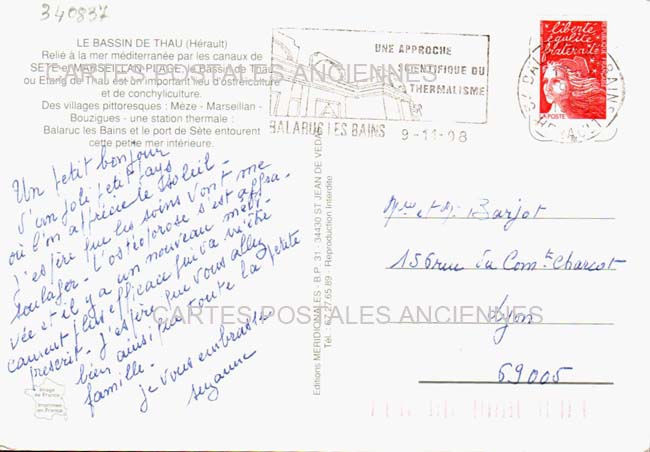 340837
LE BASSIN DE THAU (Hérault)
Relié à la mer méditerranée par les canaux de
SETE et MARSEILLAN-PLAGE, le Bassin de Thau
ou Etang de Thau est un important lieu d'ostréiculture
et de conchyliculture.
Des villages pittoresques : Mèze - Marseillan -
Bouzigues - une station thermale :
Balaruc les Bains et le port de Sète entourent
cette petite mer intérieure.
CARTES POSTALES ANCIENNES
UNE APPROCHE
SCIENTIFIQUE DU
THERMALISME
BALARUC LES BAINS 9-11-98
liberté
égalité
fraternité
LA POSTE
Un petit bonjour
d'un joli petit pays
où l'on apprécie le soleil -
J'espère que les soins vont me
soulager - L'ostéoporose s'est aggra-
vée et il y a un nouveau médi-
cament plus efficace qui va m'être
prescrit - J'espère que vous allez
bien ainsi que toute la petite
famille -
Je vous embrasse
Suzanne
Editions MERIDIONALES - B.P. 31 - 34430 ST JEAN DE VEDAS
Tél. : 67.27.65.89 - Reproduction Interdite
Mme et Mr Barjot
156 rue du Comt Charcot
Lyon
69005
CARTES POSTALES ANCIENNES
Image
de France
Imprimée
en France